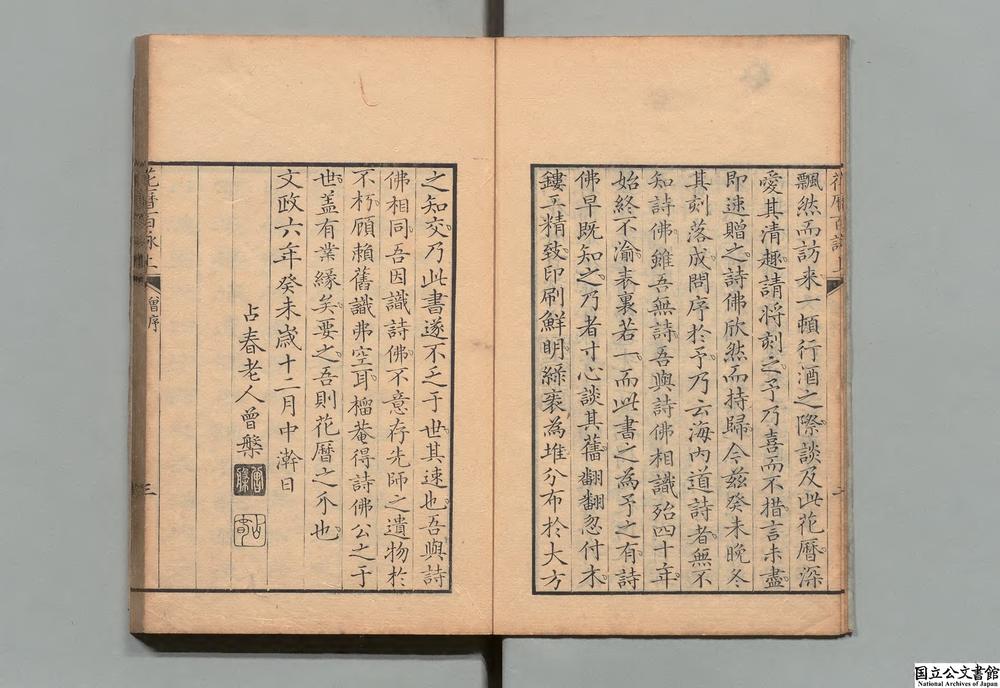 花曆百詠上
飄然而訪来一頓行酒之際談及此花曆深
愛其清趣請將刻之予乃喜而不措言未盡
即速贈之詩佛欣然而持歸今兹癸未晚冬
其刻落成問序於予乃云海内道詩者無不
知詩佛雖吾無詩吾與詩佛相識殆四十年
始終不渝表裏若一而此書之為予之有詩
佛早既知之乃者寸心談其舊翻翻忽付木
鏤工精致印刷鮮明緑裘為堆分布於大方
之知交乃此書遂不乏于世其速也吾與詩
佛相同吾因識詩佛不意存先師之遺物於
不朽顧賴舊識弗空耳榴菴得詩佛公之于
世盖有業縁矣要之吾則花曆之不也
文政六年癸未歳十二月中澣日
占春老人曾槃
花曆百詠上
曾序
三
国立公文書館
National Archives of Japan